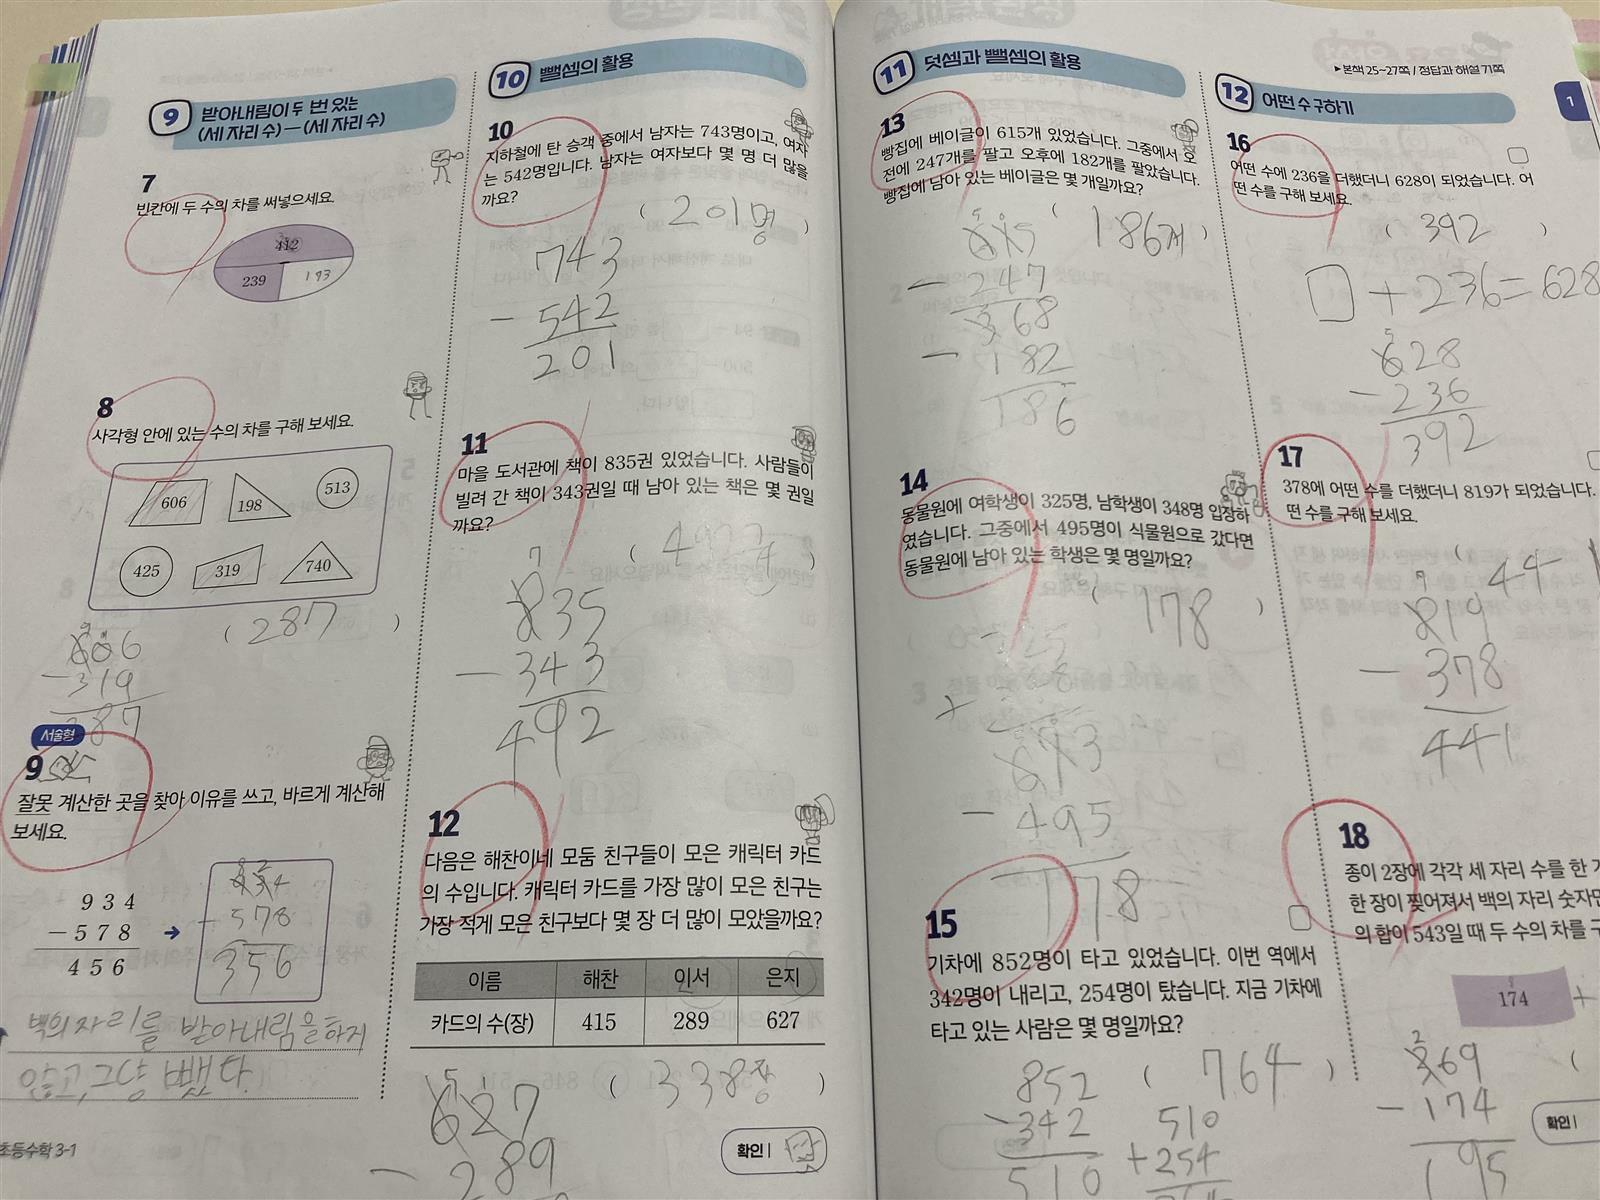 9 받아내림이 두 번 있는
(세 자리 수)-(세 자리 수)
7
빈칸에 두 수의 차를 써넣으세요.
412
239 193
8
사각형 안에 있는 수의 차를 구해 보세요.
606 198 513
425 319 740
( 287 )
606
- 319
287
서술형
9
잘못 계산한 곳을 찾아 이유를 쓰고, 바르게 계산해
보세요.
934
-578
456
934
- 578
356
백의 자리를 받아내림을 하지
않고, 그냥 뺐다.
초등수학 3-1
10 뺄셈의 활용
10
지하철에 탄 승객 중에서 남자는 743명이고, 여자
는 542명입니다. 남자는 여자보다 몇 명 더 많을
까요?
( 201명 )
743
- 542
201
11
마을 도서관에 책이 835권 있었습니다. 사람들이
빌려 간 책이 343권일 때 남아 있는 책은 몇 권일
까요?
7
835
- 343
492
12
다음은 해찬이네 모둠 친구들이 모은 캐릭터 카드
의 수입니다. 캐릭터 카드를 가장 많이 모은 친구는
가장 적게 모은 친구보다 몇 장 더 많이 모았을까요?
이름 해찬 이서 은지
카드의 수(장) 415 289 627
( 338장 )
5
627
- 289
확인 |
11 덧셈과 뺄셈의 활용
13
빵집에 베이글이 615개 있었습니다. 그중에서 오
전에 247개를 팔고 오후에 182개를 팔았습니다.
빵집에 남아 있는 베이글은 몇 개일까요?
( 186개 )
615
- 247
368
- 182
186
14
동물원에 여학생이 325명, 남학생이 348명 입장하
였습니다. 그중에서 495명이 식물원으로 갔다면
동물원에 남아 있는 학생은 몇 명일까요?
( 178 )
673
- 495
178
15
기차에 852명이 타고 있었습니다. 이번 역에서
342명이 내리고, 254명이 탔습니다. 지금 기차에
타고 있는 사람은 몇 명일까요?
( 764 )
852
- 342
510
510
+ 254
▶본책 25~27쪽 / 정답과 해설 71쪽
1
12 어떤 수 구하기
16
어떤 수에 236을 더했더니 628이 되었습니다. 어
떤 수를 구해 보세요.
( 392 )
□ + 236 = 628
5
628
- 236
392
17
378에 어떤 수를 더했더니 819가 되었습니다.
떤 수를 구해 보세요.
7
819
- 378
441
18
종이 2장에 각각 세 자리 수를 한
한 장이 찢어져서 백의 자리 숫자만
의 합이 543일 때 두 수의 차를 구
174 +
2
369
- 174
195
확인 |